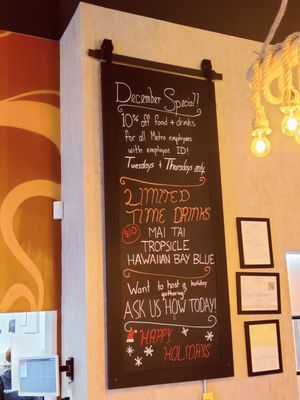 December Special!
10% off food + drinks
for all Metro employees
with employee ID!
Tuesdays & Thursdays only
LIMITED
TIME DRINKS
$10
MAI TAI
TROPSICLE
HAWAIIAN BAY BLUE
Want to host a holiday
gathering
ASK US HOW TODAY!
HAPPY
HOLIDAYS